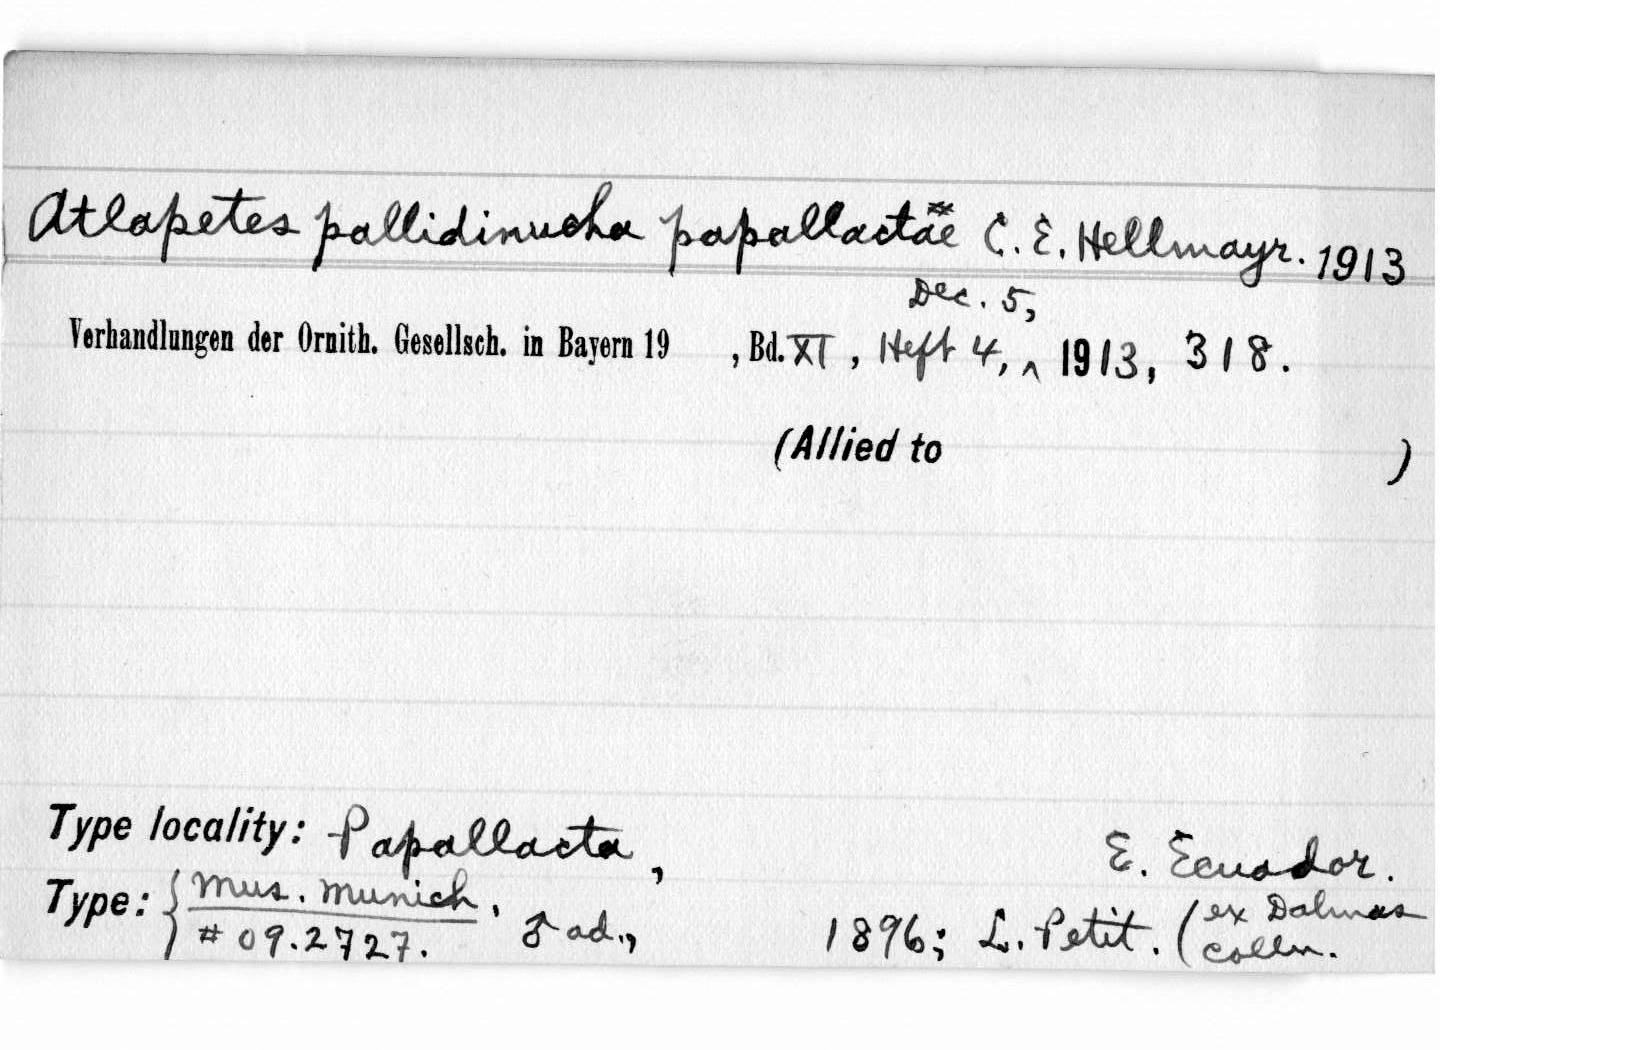 Atlapetes pallidinucha papallactae C. E. Hellmayr. 1913
Dec. 5,
Verhandlungen der Ornith. Gesellsch. in Bayern 19 , Bd. XI, Heft 4, ^ 1913, 318.
(Allied to )
Type locality: Papallacta, E. Ecuador.
Type: { Mus. Munich, # 09.2727. ♂ ad., 1896; L. Petit. (ex Dalmas Colln.